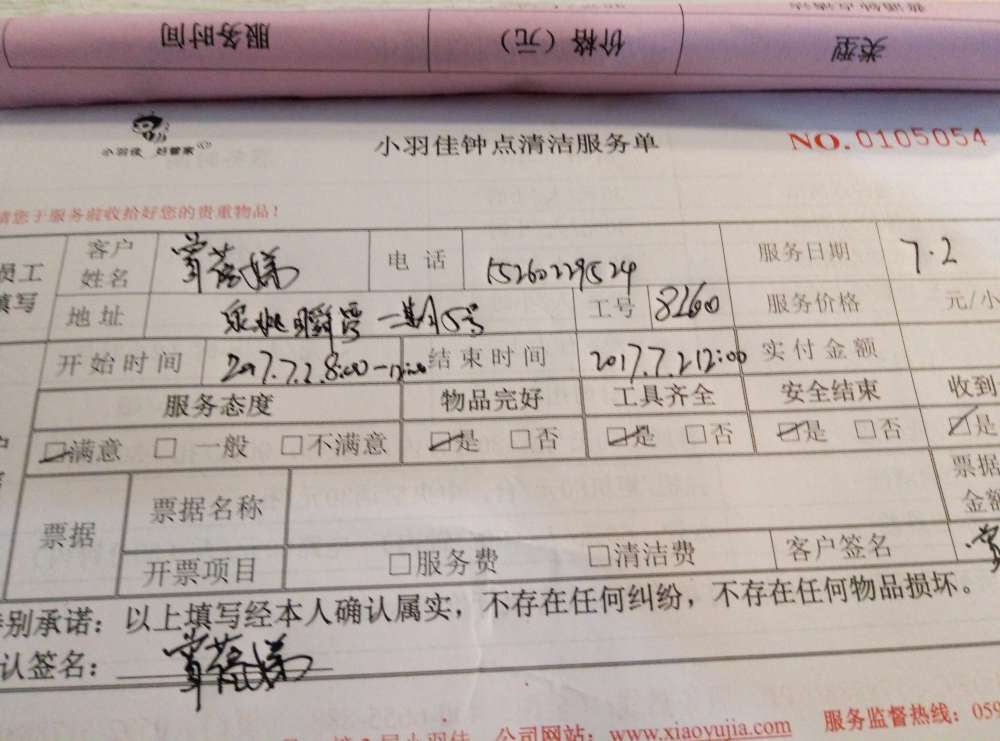 类型 价格（元） 服务时间
小羽佳 好管家
小羽佳钟点清洁服务单
NO.0105054
请您于服务前收拾好您的贵重物品！
员工填写
客户姓名 电话 15260229524 服务日期 7.2
地址 一期5号 工号 8260 服务价格 元/小
开始时间 2017.7.2.8:00-12:00 结束时间 2017.7.2 12:00 实付金额
服务态度 物品完好 工具齐全 安全结束 收到
☑满意 □一般 □不满意 ☑是 □否 ☑是 □否 ☑是 □否 ☑是
票据 票据名称 票据金额
开票项目 □服务费 □清洁费 客户签名
特别承诺：以上填写经本人确认属实，不存在任何纠纷，不存在任何物品损坏。
认签名：
公司网站：www.xiaoyujia.com 服务监督热线：059